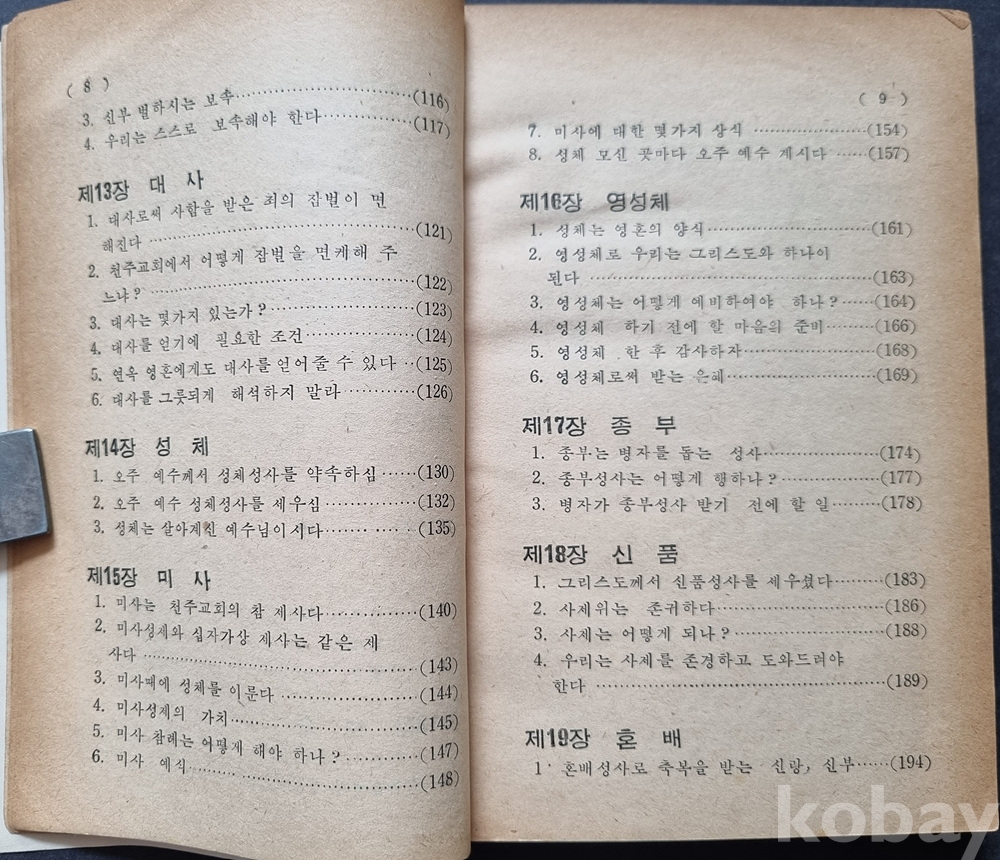 ( 8 )
3. 신부 벌하시는 보속……………………(116)
4. 우리는 스스로 보속해야 한다……………(117)
제13장 대 사
1. 대사로써 사함을 받은 죄의 잠벌이 면
해진다 ……………………………………(121)
2. 천주교회에서 어떻게 잠벌을 면케해 주
느냐? ……………………………………(122)
3. 대사는 몇가지 있는가? …………………(123)
4. 대사를 얻기에 필요한 조건……………(124)
5. 연옥 영혼에게도 대사를 얻어줄 수 있다 …(125)
6. 대사를 그릇되게 해석하지 말라 …………(126)
제14장 성 체
1. 오주 예수께서 성체성사를 약속하심 ……(130)
2. 오주 예수 성체성사를 세우심 ……………(132)
3. 성체는 살아계신 예수님이시다……………(135)
제15장 미 사
1. 미사는 천주교회의 참 제사다……………(140)
2. 미사성제와 십자가상 제사는 같은 제
사다 ………………………………………(143)
3. 미사때에 성체를 이룬다 …………………(144)
4. 미사성제의 가치……………………………(145)
5. 미사 참례는 어떻게 해야 하나? …………(147)
6. 미사 예식……………………………………(148)
( 9 )
7. 미사에 대한 몇가지 상식 …………………(154)
8. 성체 모신 곳마다 오주 예수 계시다 ……(157)
제16장 영성체
1. 성체는 영혼의 양식 ………………………(161)
2. 영성체로 우리는 그리스도와 하나이
된다 ………………………………………(163)
3. 영성체는 어떻게 예비하여야 하나? ……(164)
4. 영성체 하기 전에 할 마음의 준비………(166)
5. 영성체 한 후 감사하자 …………………(168)
6. 영성체로써 받는 은혜……………………(169)
제17장 종 부
1. 종부는 병자를 돕는 성사…………………(174)
2. 종부성사는 어떻게 행하나? ……………(177)
3. 병자가 종부성사 받기 전에 할 일………(178)
제18장 신 품
1. 그리스도께서 신품성사를 세우셨다………(183)
2. 사제위는 존귀하다…………………………(186)
3. 사제는 어떻게 되나? ……………………(188)
4. 우리는 사제를 존경하고 도와드려야
한다 ………………………………………(189)
제19장 혼 배
1 혼배성사로 축복을 받는 신랑, 신부……(194)
kobay